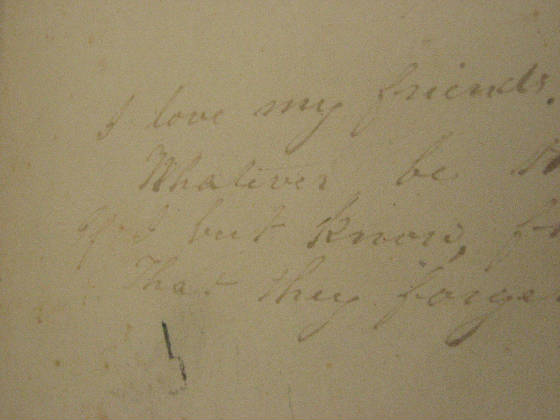 I love my friends.
Whatever be
If I but know,
That they forge